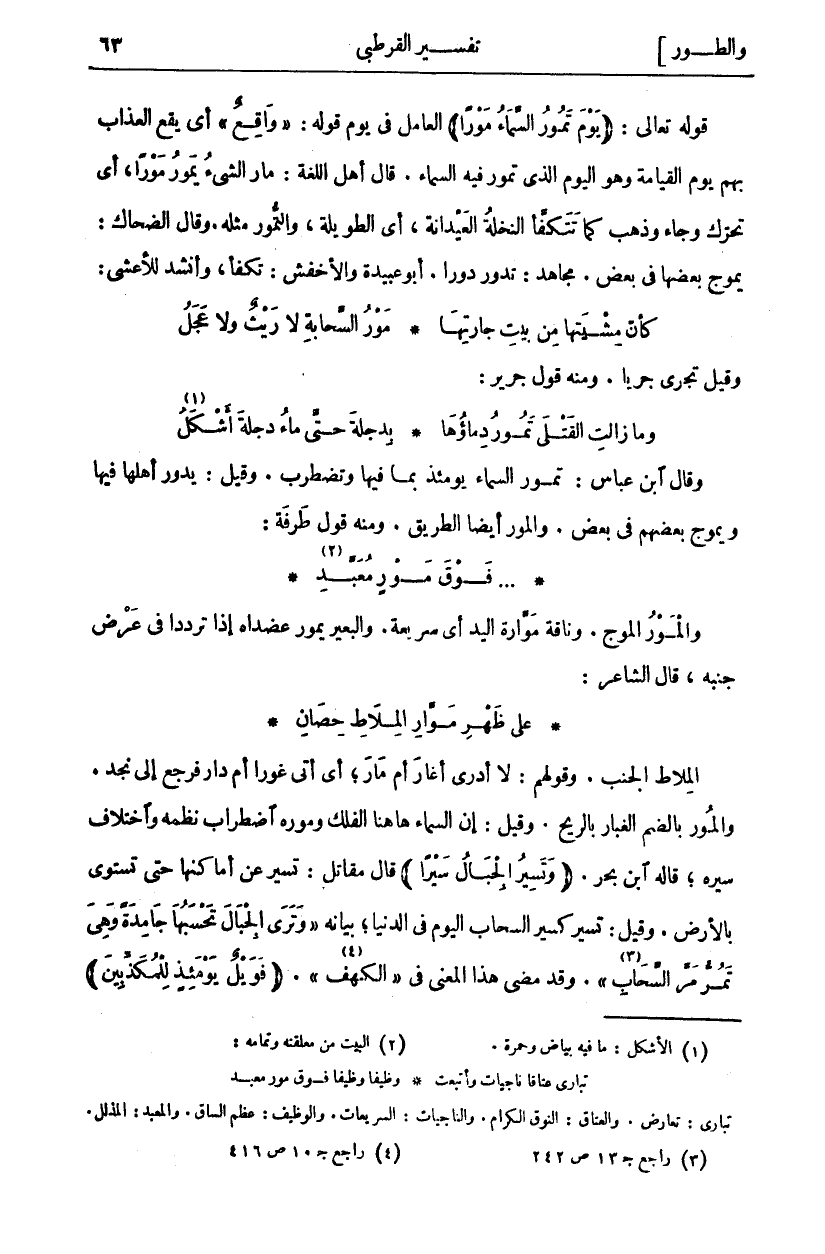 والطــور ]
تفســير القرطبى
٦٣
قوله تعالى : ﴿يَوْمَ تَمُورُ السَّمَاءُ مَوْرًا﴾ العامل فى يوم قوله : « وَاقِعٌ » أى يقع العذاب
بهم يوم القيامة وهو اليوم الذى تمور فيه السماء . قال أهل اللغة : مار الشىءُ يَمُورُ مَوْرًا ، أى
تحرّك وجاء وذهب كما تَتَكفَّأ النخلةُ العَيْدانة ، أى الطويلة ، والتَّمُّور مثله . وقال الضحاك :
يموج بعضها فى بعض . مجاهد : تدور دورا . أبو عبيدة والأخفش : تكفأ ، وأنشد للأعشى :
كأن مِشْــيَتها مِن بيتِ جارتِهَــا * مَوْرُ السَّحابةِ لا رَيْثٌ ولا عَجَلُ
وقيل تجرى جريا . ومنه قول جرير :
وما زالتِ القَتْــلَى تَمُــورُ دِماؤُهَا * بِدجلةَ حــتَّى ماءُ دجلةَ أَشْــكَلُ (١)
وقال ٱبن عباس : تمــور السماء يومئذ بمــا فيها وتضطرب . وقيل : يدور أهلها فيها
ويموج بعضهم فى بعض . والمور أيضا الطريق . ومنه قول طَرفَة :
* ... فَــوْقَ مَــوْرٍ مُعَبَّــدِ (٢) *
والْمَــوْرُ الموج . وناقة مَوَّارة اليد أى سريعة. والبعير يمور عضداه إذا ترددا فى عَرْض
جنبه ، قال الشاعر :
* على ظَهْــرِ مَــوَّارِ المِــلَاطِ حِصَانِ *
المِلاط الجنب . وقولهم : لا أدرى أغارَ أم مَارَ ؛ أى أتى غورا أم دار فرجع إلى نجد .
والمُور بالضم الغبار بالريح . وقيل : إن السماء هاهنا الفلك وموره ٱضطراب نظمه وٱختلاف
سيره ؛ قاله ٱبن بحر . ﴿ وَتَسِيرُ الْجِبَــالُ سَيْرًا ﴾ قال مقاتل : تسير عن أماكنها حتى تستوى
بالأرض . وقيل : تسير كسير السحاب اليوم فى الدنيا ؛ بيانه « وَتَرَى الْجِبَالَ تَحْسَبُهَا جَامِدَةً وَهِىَ
تَمُرُّ مَرَّ السَّحَابِ (٣) » . وقد مضى هذا المعنى فى « الكهف (٤) » . ﴿ فَوَيْلٌ يَوْمَئِذٍ لِلْمُكَذِّبِينَ ﴾
(١) الأشكل : ما فيه بياض وحمرة . (٢) البيت من معلقته وتمامه :
تبارى عتاقا ناجيات وأتبعت * وظيفا وظيفا فــوق مور معبــد
تبارى : تعارض . والعتاق : النوق الكرام . والناجيات : السريعات . والوظيف : عظم الساق . والمعبد : المذلل .
(٣) راجع جـ ١٣ ص ٢٤٢ (٤) راجع جـ ١٠ ص ٤١٦